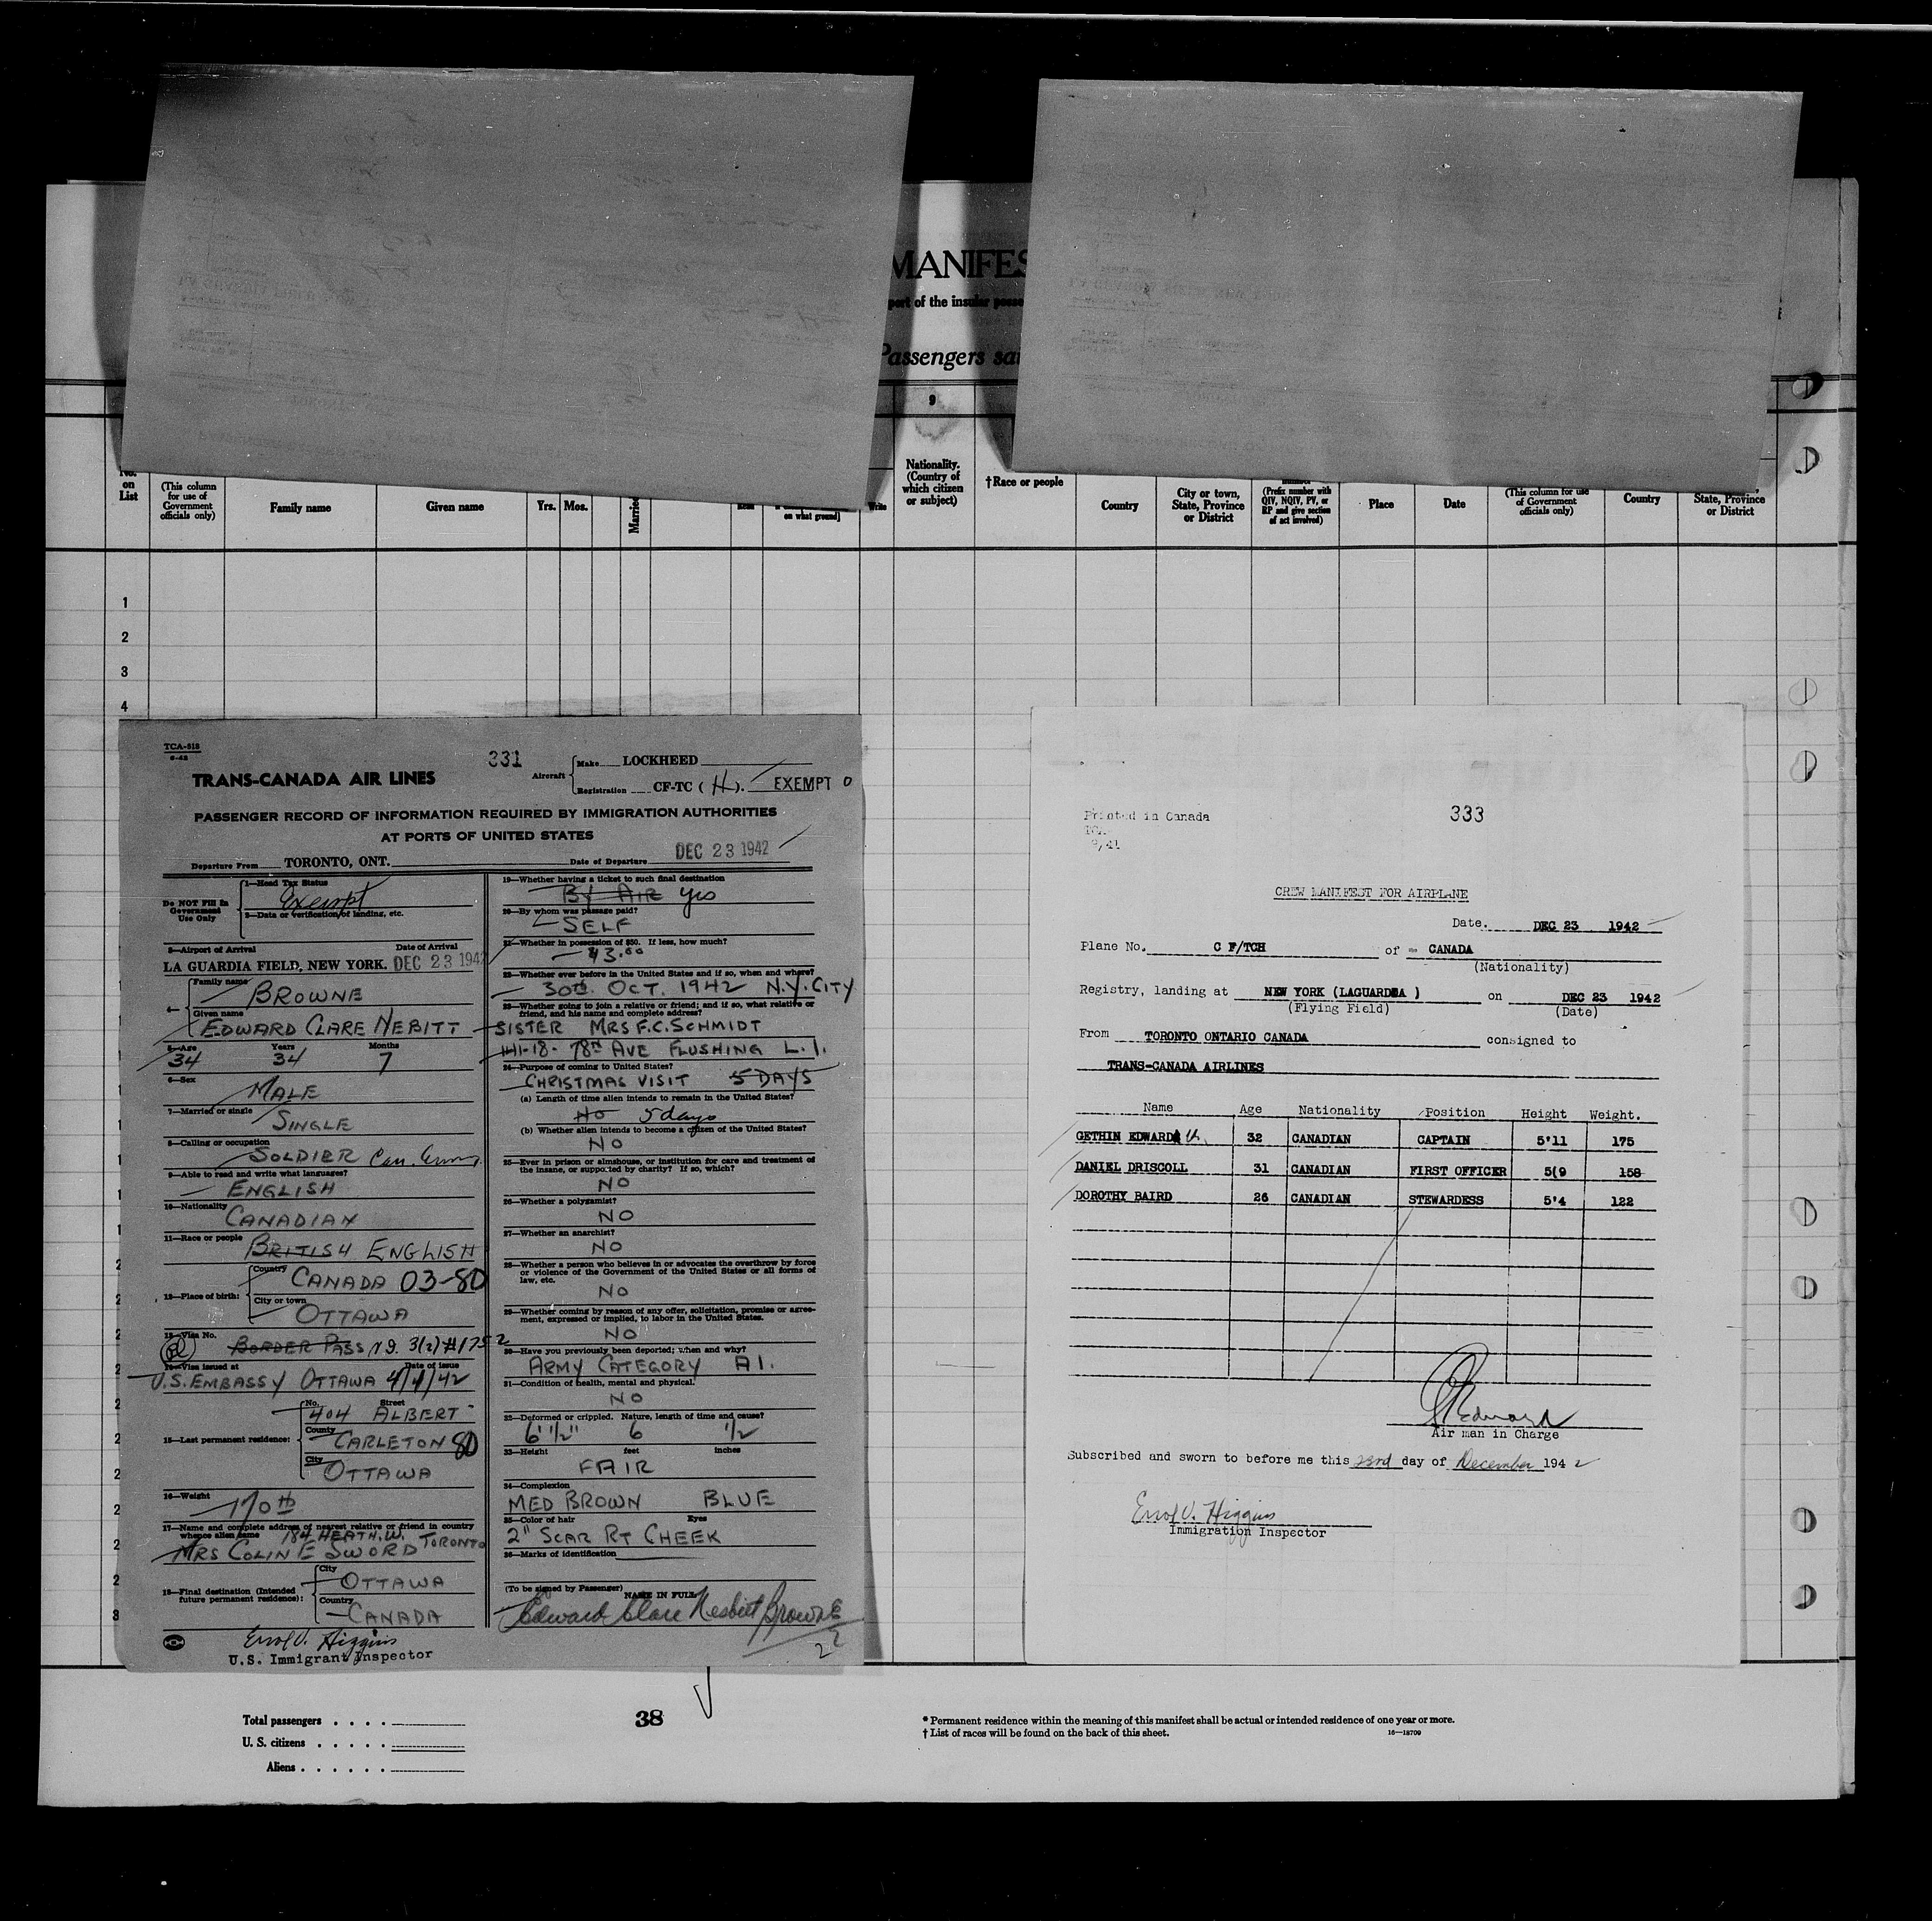 MANIFES
port of the insular posse
Passengers sai
9
No. on List
(This column for use of Government officials only)
Family name
Given name
Yrs.
Mos.
Married
Read
on what ground]
Write
Nationality. (Country of which citizen or subject)
†Race or people
Country
City or town, State, Province or District
(Prefix number with QIV, NQIV, PV, or RP and give section of act involved)
Place
Date
(This column for use of Government officials only)
Country
State, Province or District
1
2
3
4
TCA-518
331
Aircraft
Make LOCKHEED
TRANS-CANADA AIR LINES
Registration CF-TC (H). EXEMPT 0
PASSENGER RECORD OF INFORMATION REQUIRED BY IMMIGRATION AUTHORITIES
AT PORTS OF UNITED STATES
Departure From TORONTO, ONT. Date of Departure DEC 23 1942
Do NOT Fill in Government Use Only
1—Head Tax Status
Exempt
2—Data or verification of landing, etc.
3—Airport of Arrival Date of Arrival
LA GUARDIA FIELD, NEW YORK. DEC 23 1942
4—
Family name
BROWNE
Given name
EDWARD CLARE NEBITT
5—Age Years Months
34 34 7
6—Sex
MALE
7—Married or single
SINGLE
8—Calling or occupation
SOLDIER Can. Army
9—Able to read and write what languages?
ENGLISH
10—Nationality
CANADIAN
11—Race or people
BRITISH ENGLISH
12—Place of birth:
Country
CANADA 03-80
City or town
OTTAWA
13—Visa No.
BORDER PASS 3(2) #1752
14—Visa issued at Date of issue
U.S. EMBASSY OTTAWA 4/4/42
15—Last permanent residence:
No. Street
404 ALBERT
County
CARLETON 80
City
OTTAWA
16—Weight
170 lb
17—Name and complete address of nearest relative or friend in country whence alien came
184 HEATH. W.
MRS COLIN E SWORD TORONTO
18—Final destination (Intended future permanent residence):
City
OTTAWA
Country
CANADA
Errol V. Higgins
U.S. Immigrant Inspector
19—Whether having a ticket to such final destination
BY AIR yes
20—By whom was passage paid?
SELF
21—Whether in possession of $50. If less, how much?
43.00
22—Whether ever before in the United States and if so, when and where?
30th. OCT. 1942 N.Y. CITY
23—Whether going to join a relative or friend; and if so, what relative or friend, and his name and complete address?
SISTER MRS F.C. SCHMIDT
141-18- 78TH AVE FLUSHING L.I.
24—Purpose of coming to United States?
CHRISTMAS VISIT 5 DAYS
(a) Length of time alien intends to remain in the United States?
NO 5 days
(b) Whether alien intends to become a citizen of the United States?
NO
25—Ever in prison or almshouse, or institution for care and treatment of the insane, or supported by charity? If so, which?
NO
26—Whether a polygamist?
NO
27—Whether an anarchist?
NO
28—Whether a person who believes in or advocates the overthrow by force or violence of the Government of the United States or all forms of law, etc.
NO
29—Whether coming by reason of any offer, solicitation, promise or agreement, expressed or implied, to labor in the United States.
NO
30—Have you previously been deported; when and why?
ARMY CATEGORY A1.
31—Condition of health, mental and physical.
NO
32—Deformed or crippled. Nature, length of time and cause?
6' 1/2" 6 1/2
33—Height feet inches
FAIR
34—Complexion
MED BROWN BLUE
35—Color of hair Eyes
2" SCAR RT CHEEK
36—Marks of identification
(To be signed by Passenger) NAME IN FULL
Edward Clare Nesbitt Browne
22
Printed in Canada
333
CREW MANIFEST FOR AIRPLANE
Date. DEC 23 1942
Plane No. C F/TCH of = CANADA
(Nationality)
Registry, landing at NEW YORK (LAGUARDIA ) on DEC 23 1942
(Flying Field) (Date)
From TORONTO ONTARIO CANADA consigned to
TRANS-CANADA AIRLINES
Name Age Nationality Position Height Weight.
GETHIN EDWARD 32 CANADIAN CAPTAIN 5'11 175
DANIEL DRISCOLL 31 CANADIAN FIRST OFFICER 5(9 158
DOROTHY BAIRD 26 CANADIAN STEWARDESS 5'4 122
Air man in Charge
Subscribed and sworn to before me this 23rd day of December 1942
Errol V. Higgins
Immigration Inspector
Total passengers
U. S. citizens
Aliens
38
* Permanent residence within the meaning of this manifest shall be actual or intended residence of one year or more.
† List of races will be found on the back of this sheet.
16—18709